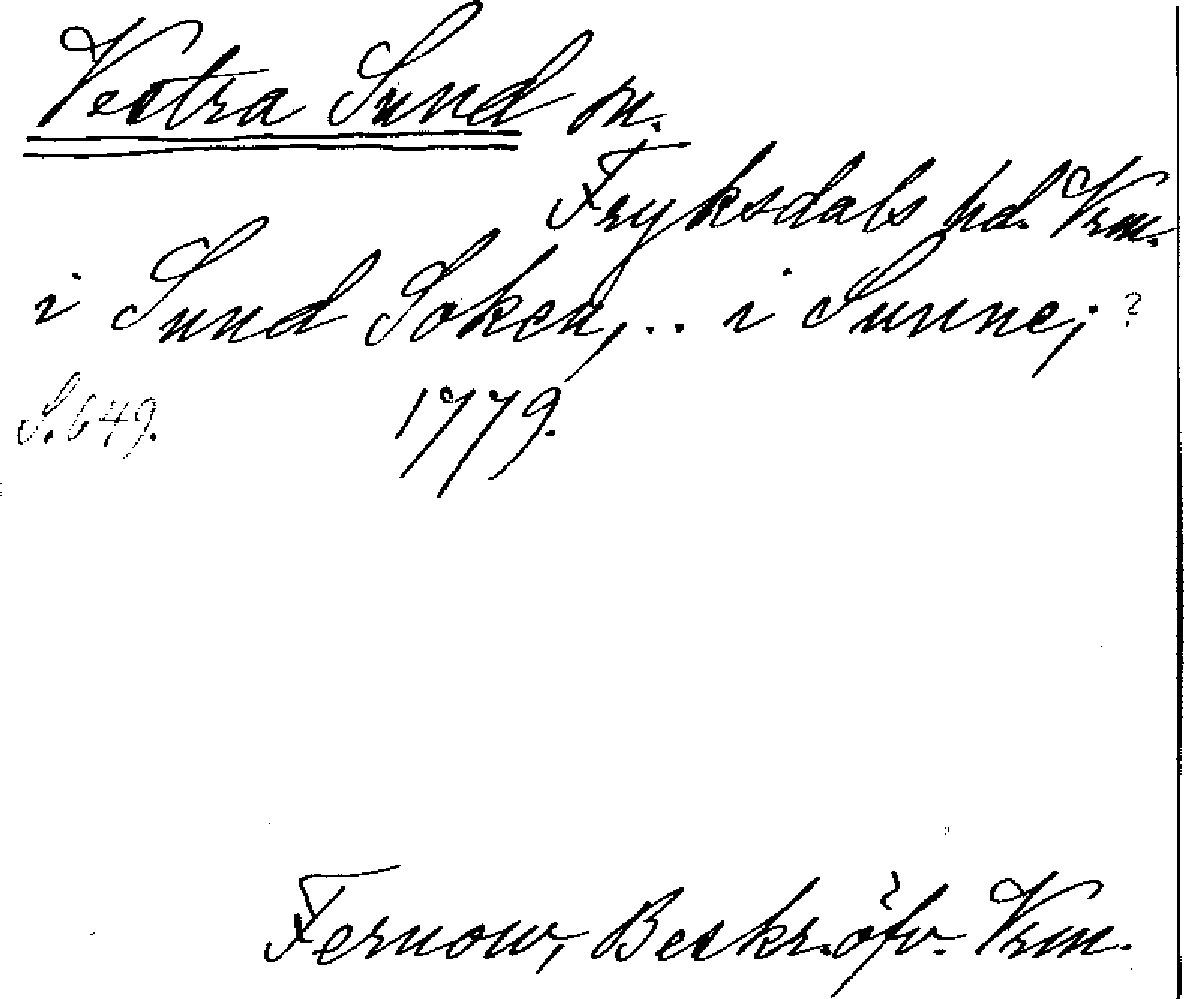 Vestra Sund sn.
Fryksdals hd. Vrm.
i Sund Soken, .. i Sunne; ?
S. 649. 1779.
Fernow, Beskr. öfv. Vrm.